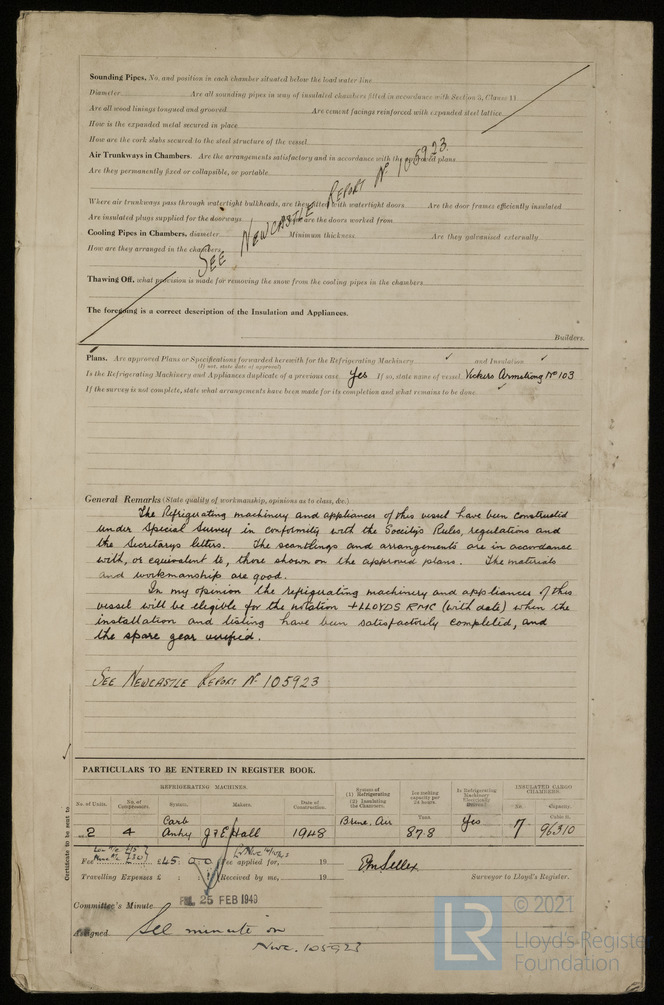 Sounding Pipes. No. and position in each chamber situated below the load water line
Diameter Are all sounding pipes in way of insulated chambers fitted in accordance with Section 5, Clause 11
Are all wood linings tongued and grooved Are cement facings reinforced with expanded steel lattice
How is the expanded metal secured in place
How are the cork slabs secured to the steel structure of the vessel
Air Trunkways in Chambers. Are the arrangements satisfactory and in accordance with the approved plans
Are they permanently fixed or collapsible, or portable
Where air trunkways pass through watertight bulkheads, are they fitted with watertight doors Are the door frames efficiently insulated
Are insulated plugs supplied for the doorways are the doors worked from
Cooling Pipes in Chambers, diameter Minimum thickness Are they galvanised externally
How are they arranged in the chambers
SEE NEWCASTLE REPORT No 105923.
Thawing Off, what provision is made for removing the snow from the cooling pipes in the chambers
The foregoing is a correct description of the Insulation and Appliances.
Builders.
Plans. Are approved Plans or Specifications forwarded herewith for the Refrigerating Machinery ✓ and Insulation ✓
(If not, state date of approval)
Is the Refrigerating Machinery and Appliances duplicate of a previous case Yes If so, state name of vessel Vickers Armstrong No 103
If the survey is not complete, state what arrangements have been made for its completion and what remains to be done
General Remarks (State quality of workmanship, opinions as to class, &c.)
The Refrigerating machinery and appliances of this vessel have been constructed
under Special Survey in conformity with the Society's Rules, regulations and
the Secretarys letters. The scantlings and arrangements are in accordance
with, or equivalent to, those shown on the approved plans. The materials
and workmanship are good.
In my opinion the refrigerating machinery and appliances of this
vessel will be elegible for the notation +LLOYDS RMC (with date) when the
installation and testing have been satisfactorily completed, and
the spare gear verified.
SEE NEWCASTLE REPORT No 105923
Certificate to be sent to
PARTICULARS TO BE ENTERED IN REGISTER BOOK.
REFRIGERATING MACHINES.
No. of Units. No. of Compressors. System. Makers. Date of Construction.
System of (1) Refrigerating (2) Insulating the Chambers.
Ice melting capacity per 24 hours. Tons.
Is Refrigerating Machinery Electrically Driven?
INSULATED CARGO CHAMBERS.
No. Capacity. Cubic ft.
2 4 Carb Anhy J & E Hall 1948 Brine. Air 87.8 Yes 7 96310
Fee £45 : 0 : 0 Fee applied for, 19
Travelling Expenses £ : : Received by me, 19
Surveyor to Lloyd's Register.
Committee's Minute 25 FEB 1949
Assigned See minute on
Nwc. 105923
LR
© 2021
Lloyd's Register
Foundation